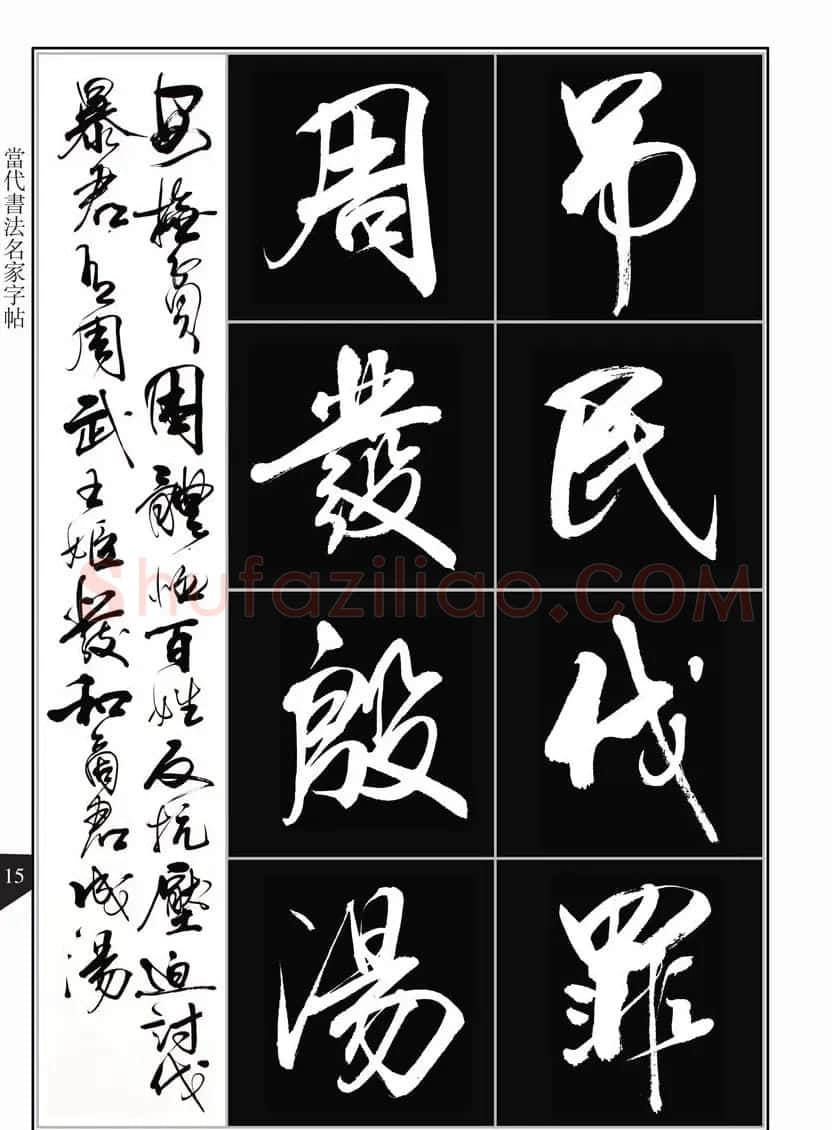 吊民伐罪
周發殷湯
安撫貧困體恤百姓反抗壓迫討伐
暴君有周武王姬發和商君成湯
當代書法名家字帖
15
Shufaziliao.COM